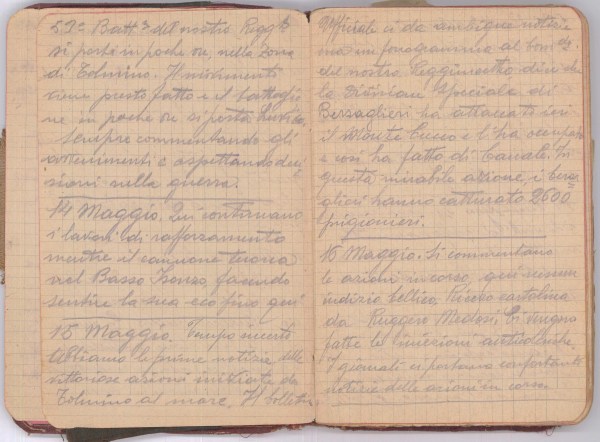 52° Batt.ne del nostro Regg.to
si porti in poche ore, nella zona
di Tolmino. Il movimento
viene presto fatto e il battaglio
ne in poche ore si porta
sempre commentando gli
avvenimenti e aspettando deci
sioni nella guerra.
14 Maggio. Qui continuano
i lavori di rafforzamento
mentre il cannone tuona
nel Basso Isonzo, facendo
sentire la sua eco fino qui
15 Maggio. Tempo incerto
Abbiamo le prime notizie delle
vittoriose azioni iniziate da
Tolmino al mare. Il bolletti
Ufficiale ci da ambigue notizie
ma un fonogramma al
del nostro Reggimento, dice che
la Divisione Speciale di
Bersaglieri ha attaccato ieri
il Monte Cucco e l'ha occupato
e così ha fatto di Canale. In
questa mirabile azione, i bersa
glieri hanno catturato 2600
prigionieri.
16 Maggio. Si commentano
le azioni in corso, qui nessun
indizio bellico. Ricevo cartolina
da Ruggero Medosi. Ci vengono
fatte le iniezioni anticoleriche.
I giornali ci portano confortanti
notizie delle azioni in corso